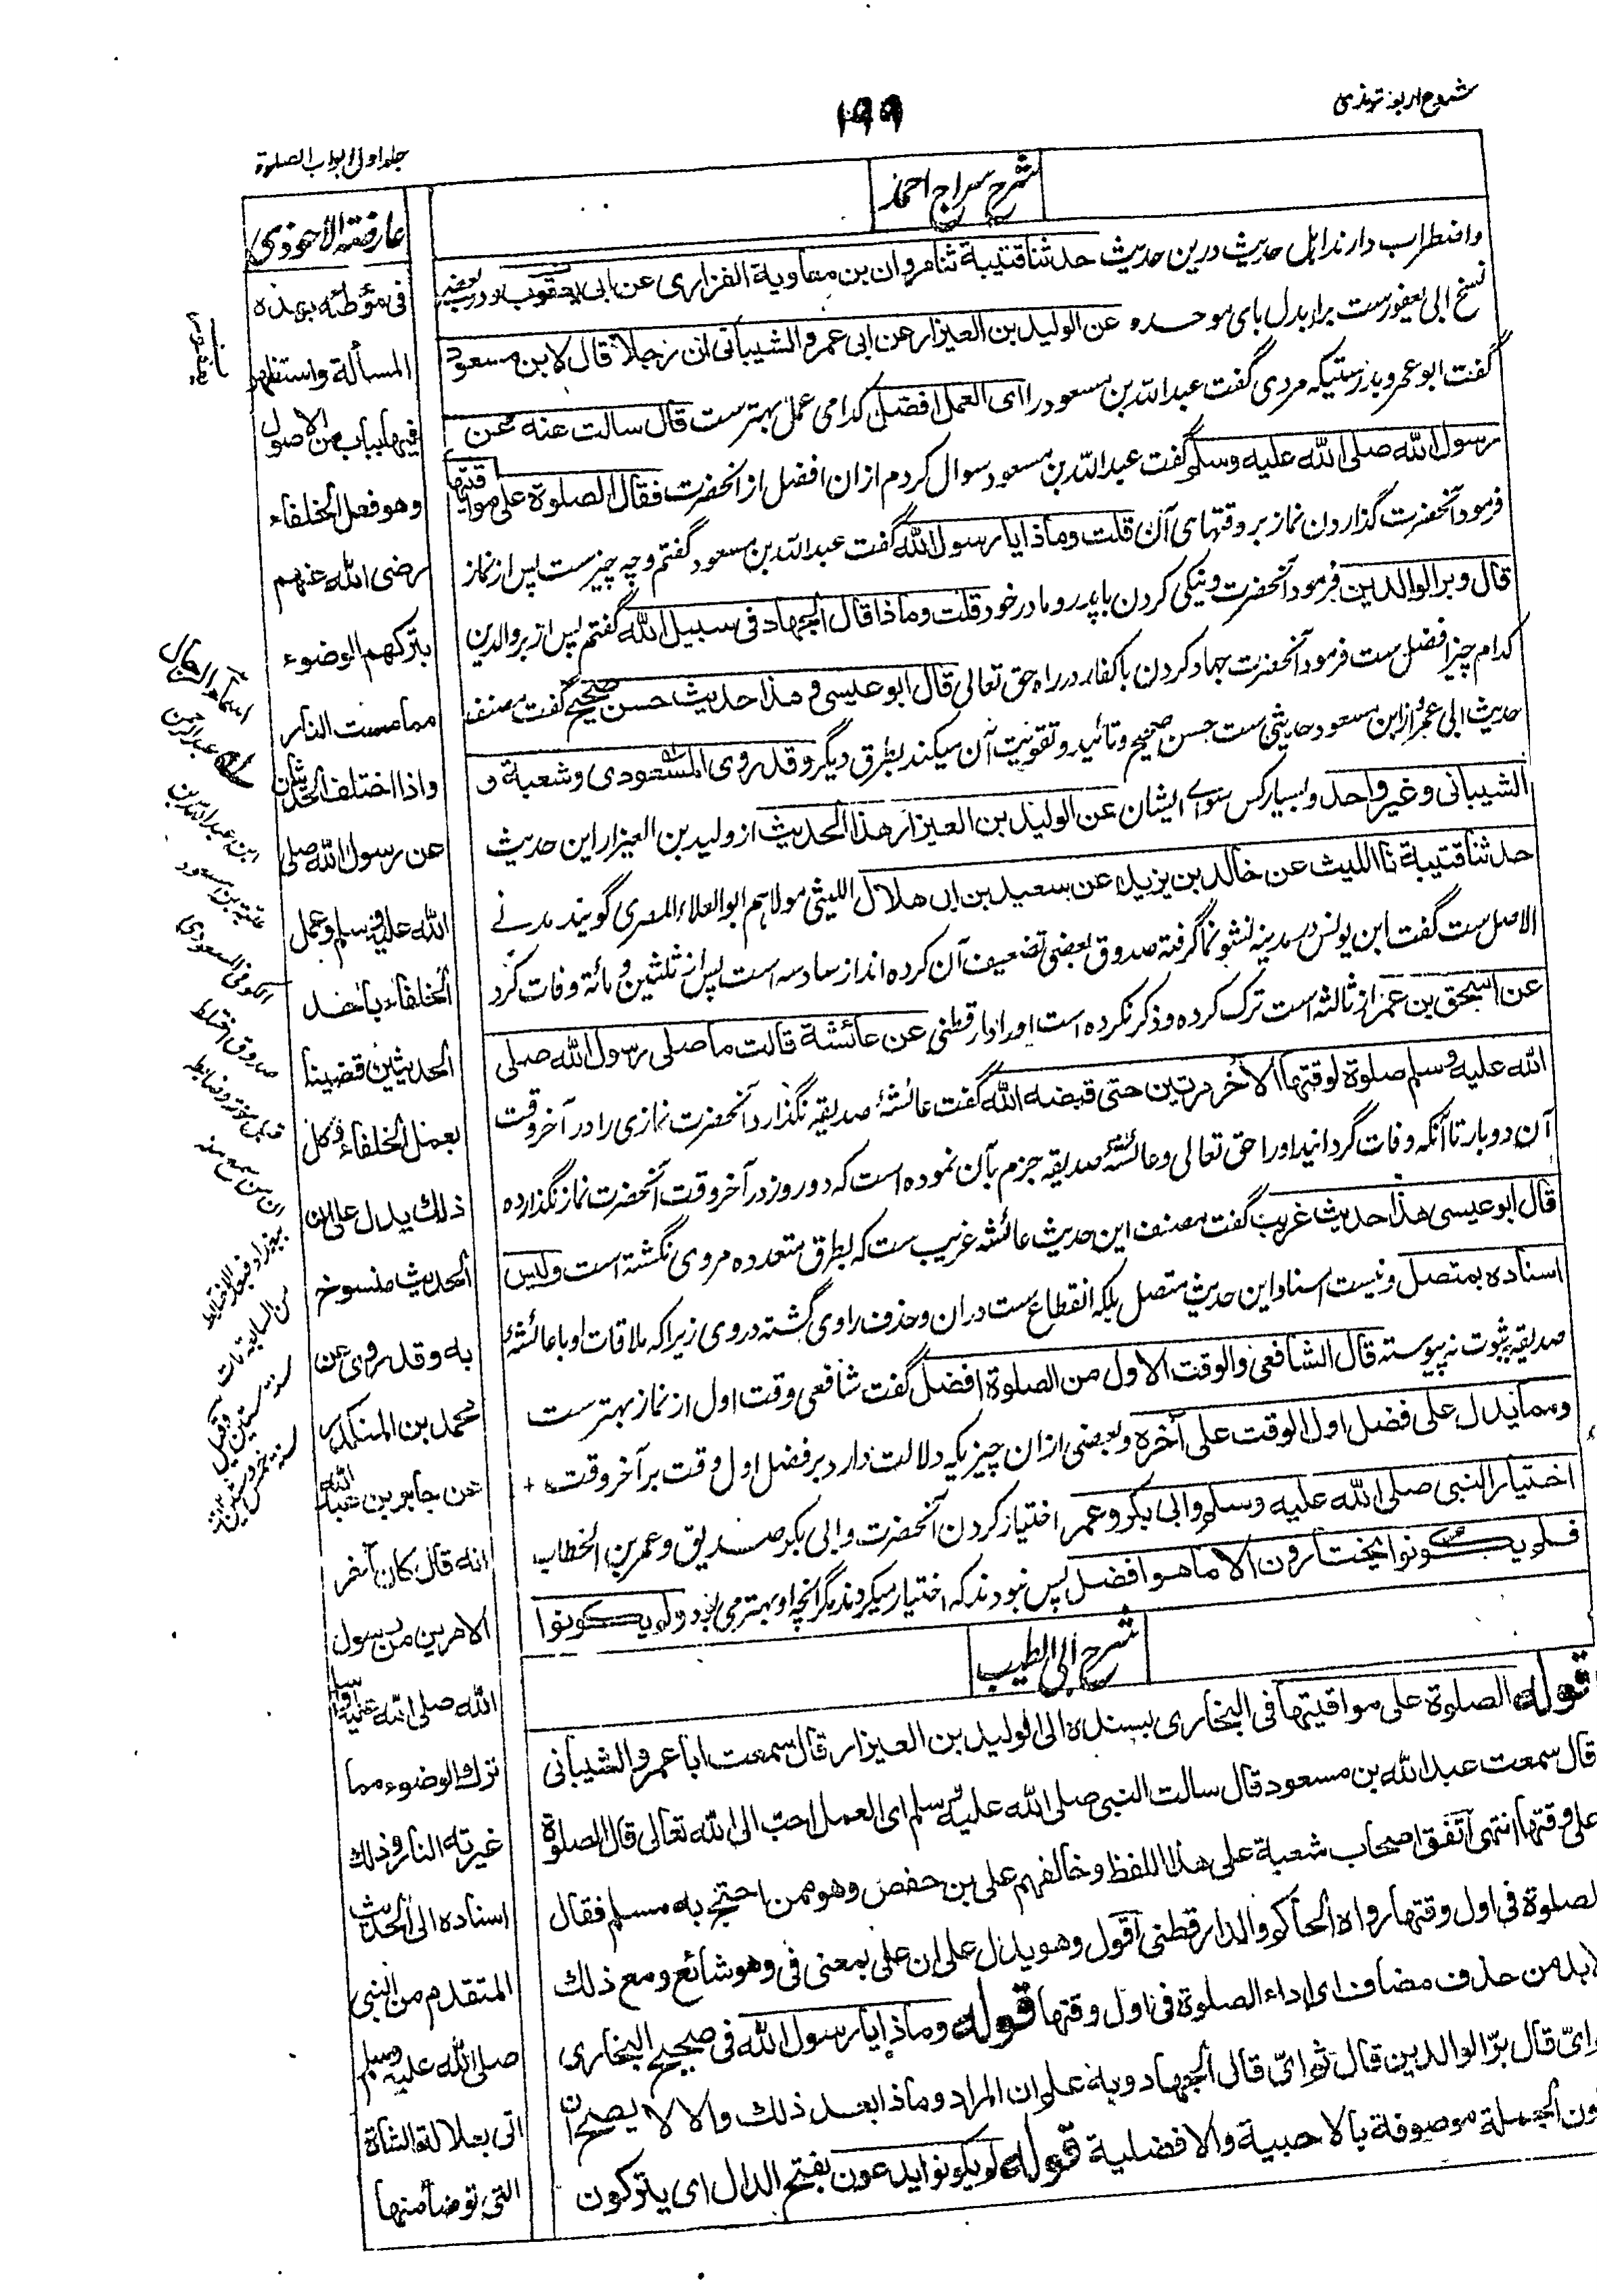 شروح اربعہ ترمذی
۱۹۹
جلد اول ابواب الصلوة
شرح سراج احمد
واضطراب دارند اہل حدیث درین حدیث حدثنا قتیبة ثنا مروان بن معاویة الفزاری عن ابی یعقوب ودر بعض
نسخ ابی یعفورست برا بدل بای موحدہ عن الولید بن العیزار عن ابی عمرو الشیبانی ان رجلا قال لابن مسعود
گفت ابو عمرو بدرستیکہ مردی گفت عبداللہ بن مسعود را ای العمل افضل کدامی عمل بہترست قال سالت عنه عن
رسول الله صلی الله علیه وسلم گفت عبداللہ بن مسعود سوال کردم ازان افضل از انحضرت فقال الصلوة علی مواقیتها
فرمود آنحضرت گذاردن نماز بر وقتہای آن قلت وماذا یا رسول الله گفت عبداللہ بن مسعود گفتم وچہ چیزست پس از نماز
قال وبر الوالدین فرمود آنحضرت ونیکی کردن با پدر ومادر خود قلت وماذا قال الجهاد فی سبیل الله گفتم پس از بر والدین
کدام چیز افضل ست فرمود آنحضرت جہاد کردن با کفار در راہ حق تعالی قال ابو عیسی وهذا حدیث حسن صحیح گفت مصنف
حدیث ابی عمرو از ابن مسعود حدیثی ست حسن صحیح وتائید وتقویت آن میکند بطرق دیگر وقد روی المسعودی وشعبة و
الشیبانی وغیر واحد وبسیار کس سوای ایشان عن الولید بن العیزار هذا الحدیث از ولید بن العیزار این حدیث
حدثنا قتیبة نا اللیث عن خالد بن یزید عن سعید بن ابی هلال اللیثی مولاہم ابو العلاء المصری گویند مدنی
الاصل ست گفت ابن یونس در مدینہ نشو نما گرفتہ صدوق بعضی تضعیف آن کردہ اند از سادسہ است پس از ثلثین ومائة وفات کرد
عن اسحق بن عمر از ثالثہ است ترک کردہ وذکر نکردہ است اورا دارقطنی عن عائشة قالت ما صلی رسول الله صلی
الله علیه وسلم صلوة لوقتها الآخر مرتین حتی قبضه الله گفت عائشہ صدیقہ نگذارد آنحضرت نمازی را در آخر وقت
آن دوبار تا آنکہ وفات گردانید اورا حق تعالی وعائشہ صدیقہ جزم بآن نمودہ است کہ دو روز در آخر وقت آنحضرت نماز نگذاردہ
قال ابو عیسی هذا حدیث غریب گفت مصنف این حدیث عائشہ غریب ست کہ بطرق متعددہ مروی نگشتہ است ولیس
اسناده بمتصل ونیست اسناد این حدیث متصل بلکہ انقطاع ست دران وحذف راوی گشتہ دروی زیراکہ ملاقات او با عائشہ
صدیقہ بثبوت نہ پیوستہ قال الشافعی والوقت الاول من الصلوة افضل گفت شافعی وقت اول از نماز بہترست
ومما یدل علی فضل اول الوقت علی آخره وبعضی ازان چیزیکہ دلالت دارد بر فضل اول وقت بر آخر وقت
اختیار النبی صلی الله علیه وسلم وابی بکر وعمر اختیار کردن آنحضرت وابی بکر صدیق وعمر بن الخطاب
فلم یکونوا یختارون الا ما هو افضل پس نبودند کہ اختیار میکردند مگر انچہ او بہتر می بود ولم یکونوا
شرح ابی الطیب
قوله الصلوة علی مواقیتها فی البخاری بسنده الی الولید بن العیزار قال سمعت ابا عمرو الشیبانی
قال سمعت عبد الله بن مسعود قال سالت النبی صلی الله علیه وسلم ای العمل احب الی الله تعالی قال الصلوة
علی وقتها انتهی اتفق اصحاب شعبة علی هذا اللفظ وخالفهم علی بن حفص وهو ممن احتج به مسلم فقال
الصلوة فی اول وقتها رواه الحاکم والدارقطنی اقول وهو یدل علی ان علی بمعنی فی وهو شائع ومع ذلك
لابد من حذف مضاف ای اداء الصلوة فی اول وقتها قوله وماذا یا رسول الله فی صحیح البخاری
ای قال بر الوالدین قال ثم ای قال الجهاد وبه علم ان المراد وماذا بعد ذلك والا لا یصح ان
الجملة موصوفة بالاحبیة والافضلیة قوله لم یکونوا یدعون بفتح الدال ای یترکون
عارضة الاحوذی
فی مؤطئه بهذه
المسألة واستظهر
فیها بباب من الاصول
وهو فعل الخلفاء
رضی الله عنهم
بترکهم الوضوء
مما مست النار
واذا اختلف الحدیثان
عن رسول الله صلی
الله علیه وسلم وعمل
الخلفاء باحد
الحدیثین قضینا
بعمل الخلفاء وکل
ذلك یدل علی ان
الحدیث منسوخ
به وقد روی عن
محمد بن المنکدر
عن جابر بن عبد الله
انه قال کان آخر
الامرین من رسول
الله صلی الله علیه وسلم
ترك الوضوء مما
غیرته النار وذلك
اسناده الی الحدیث
المتقدم من النبی
صلی الله علیه وسلم
اتی بعلالة الشاة
التی توضأ منها
اسماء الرجال
عبد الرحمن
ابن عبد الله بن
عتبة بن مسعود
الکوفی المسعودی
صدوق اختلط
قبل موته وضابطه
ان من سمع منه
ببغداد فبعد الاختلاط
من السابعة مات
سنة ستین وقیل
سنة خمس وستین